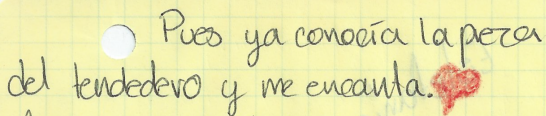 Pues ya conocía la peza
del tendedero y me encanta.